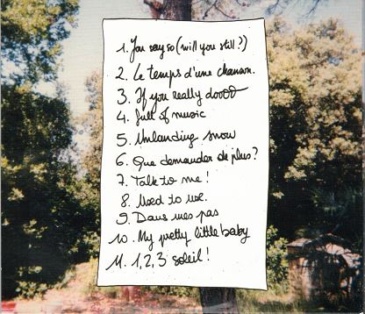 1. You say so (will you still?)
2. Le temps d'une chanson.
3. If you really
4. full of music
5. snow
6. Que demander de plus?
7. Talk to me!
8. Used to we.
9. Dans mes pas
10. My pretty little baby
11. 1, 2, 3 soleil!